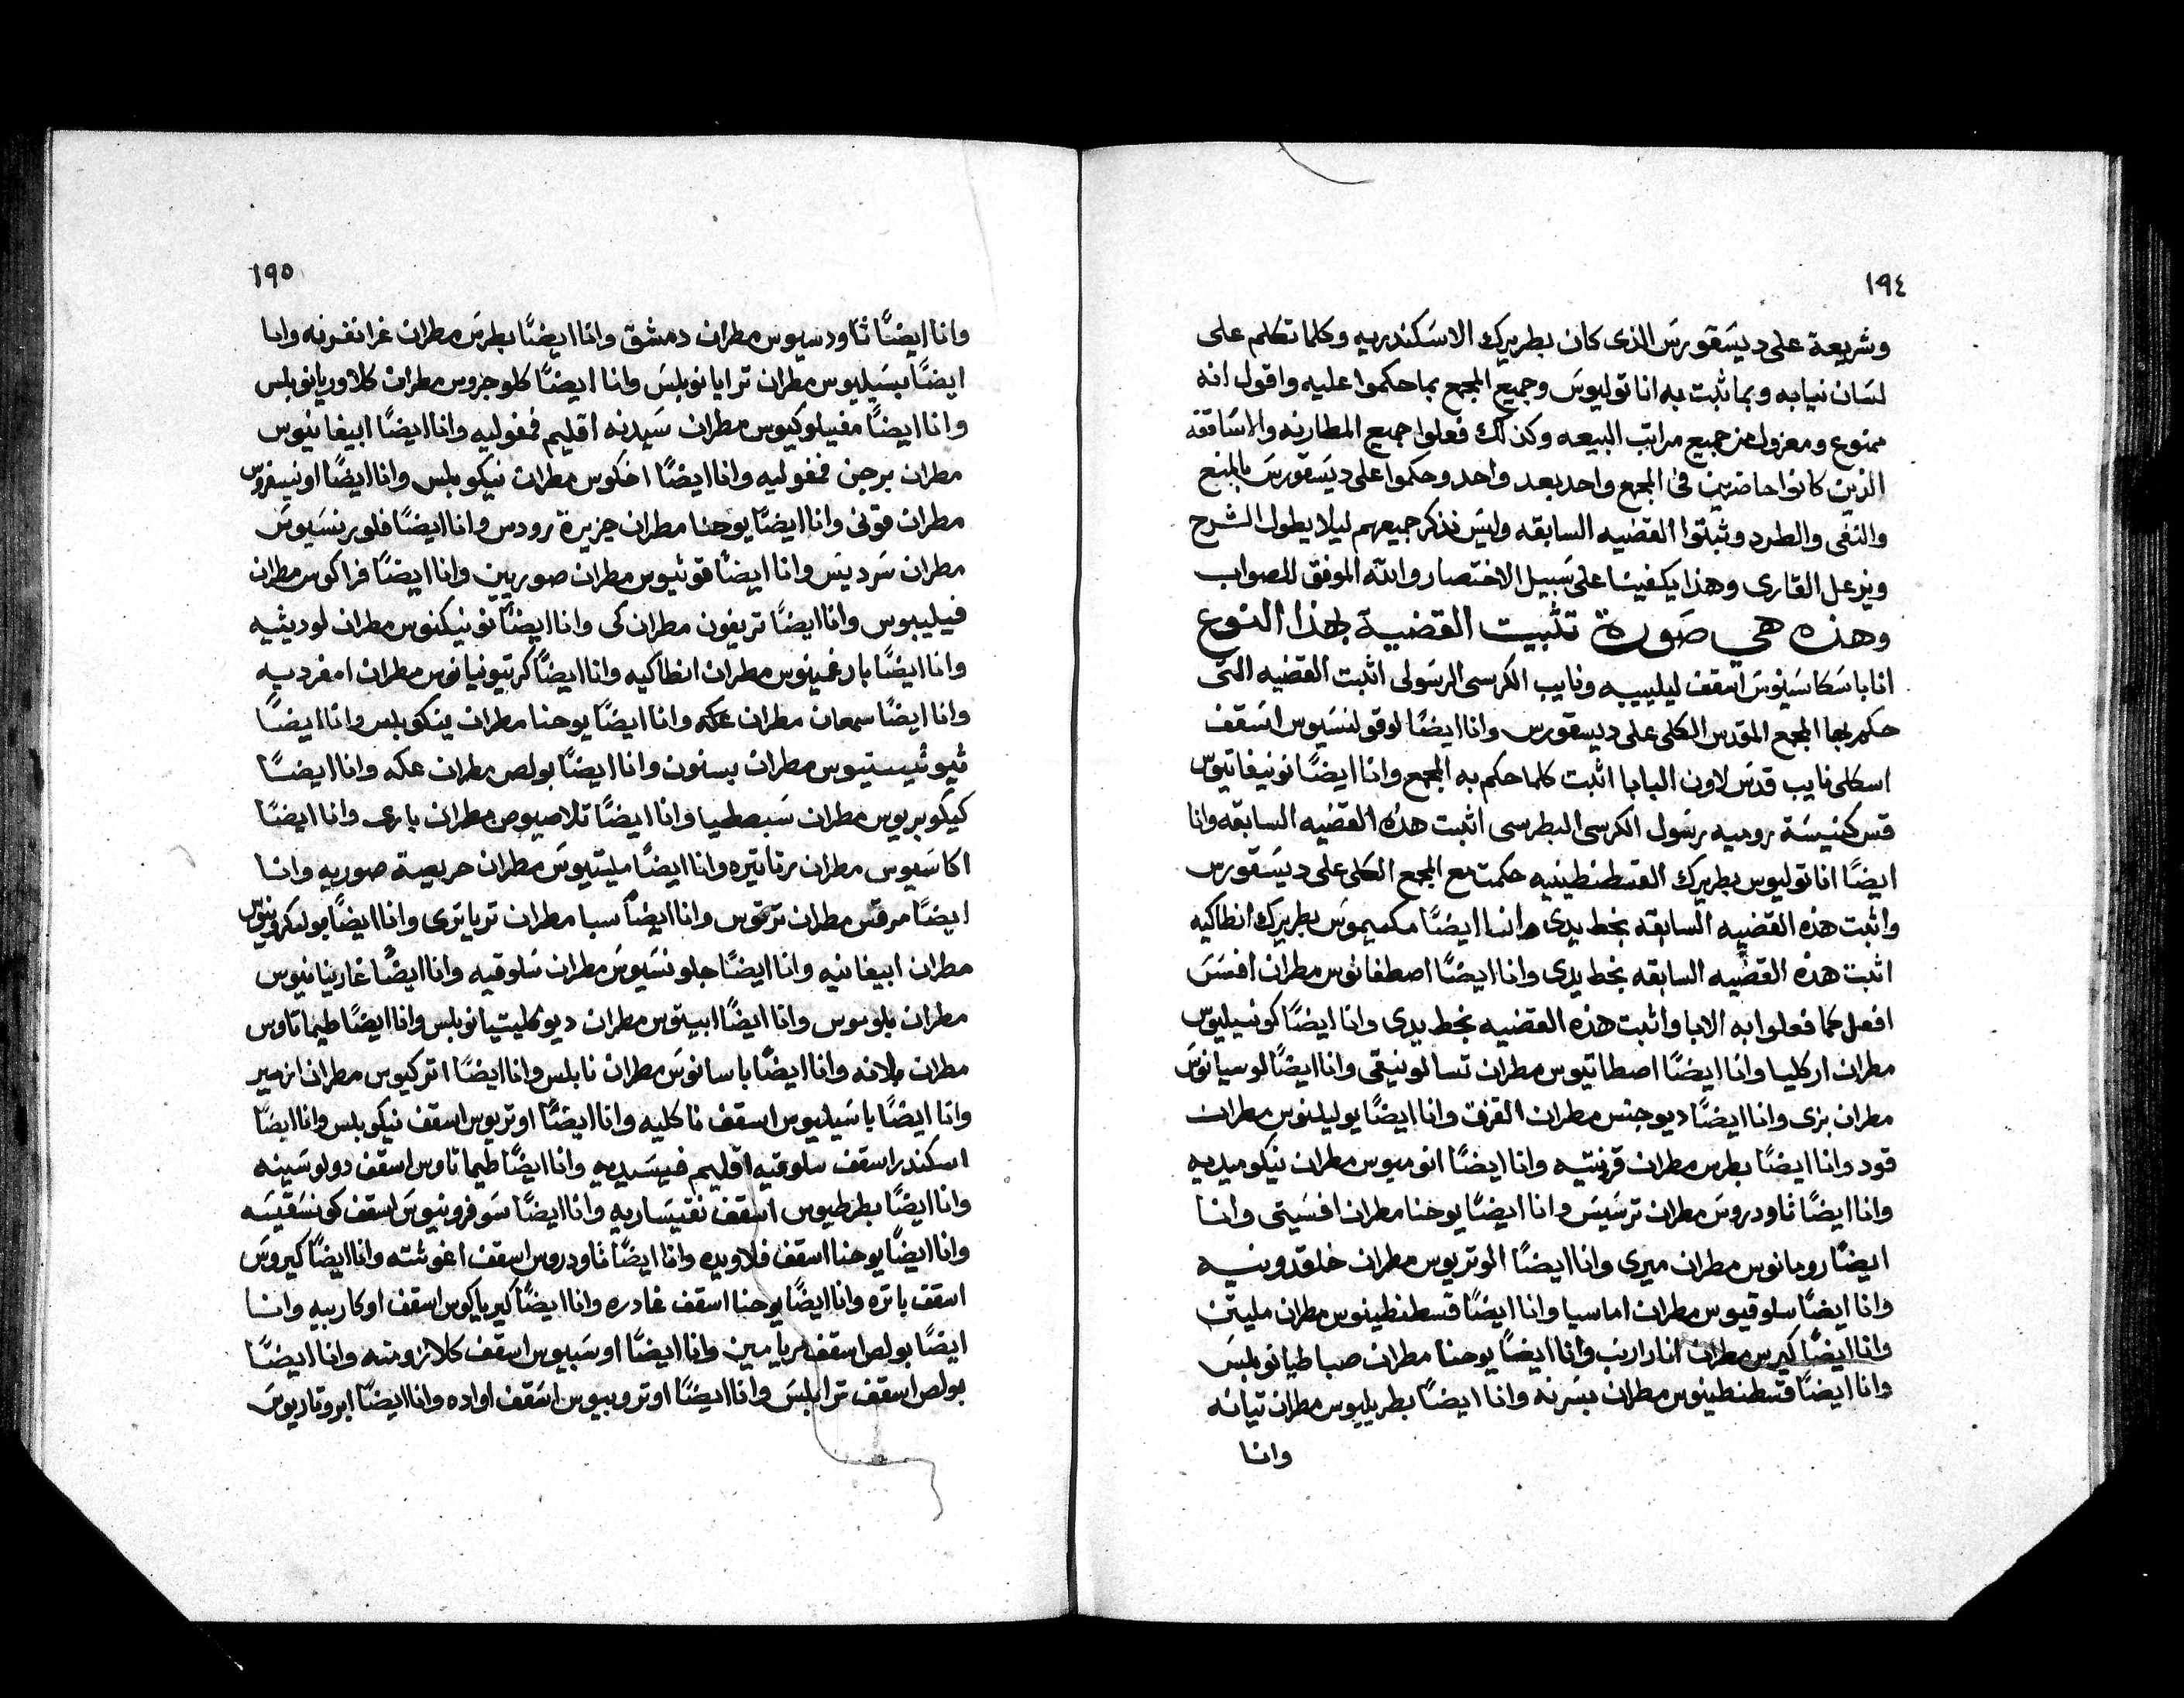 ١٩٤
وشريعة على ديسَقورسَ الذى كان بطريرك الاسَكندريه وكلما تكلم على
لسَان نيابه وبما ثبت به اناتوليوسَ وجميع المجمع بما حكموا عليه واقول انه
ممنوع ومعزول من جميع مراتب البيعه وكذلك فعلوا جميع المطارنه والاسَاقفه
الذين كانوا حاضرين فى المجمع واحد بعد واحد وحكموا على ديسَقورسَ بالمنع
والنفى والطرد وثبتوا القضيه السابقه وليسَ نذكر جميعهم ليلا يطول الشرح
ويزعل القارى وهذا يكفينا على سَبيل الاختصار والله الموفق للصواب
وهذه هي صَورة تثبيت القضية بهذا النوع
انا باسَكاسَينوسَ اسقف ليليبيه ونايب الكرسى الرسَولى اثبت القضيه التى
حكم بها المجمع المقدس الكلى على ديسقورس وانا ايضًا لوقولنسَيوس اسَقف
اسكلى نايب قدسَ لاون البابا اثبت كلما حكم به المجمع وانا ايضًا نونيفاتيوس
قس كنيسَة روميه رسَول الكرسى البطرسى اثبت هذه القضيه السابقه وانا
ايضًا اناتوليوس بطريرك القسطنطينيه حكمت مع المجمع الكلى على ديسَقورس
واثبت هذه القضيه السابقه بخط يدى وانا ايضًا مكسيموسَ بطريرك انطاكيه
اثبت هذه القضيه السابقه بخط يدى وانا ايضًا اصطفانوس مطران افسَسَ
افعل كما فعلوا به الابا واثبت هذه القضيه بخط يدى وانا ايضًا كونسيليوس
مطران اركليا وانا ايضًا اصطاتيوس مطران تسالونيقى وانا ايضًا لوسيانوسَ
مطران بزى وانا ايضًا ديوجنس مطران القزق وانا ايضًا يوليلنوس مطران
قود وانا ايضًا بطرس مطران قرنتيه وانا ايضًا انوميوس مطران نيكوميديه
وانا ايضًا ثاودروسَ مطران ترسَيسَ وانا ايضًا يوحنا مطران افسَيتى وانا
ايضًا رومانوس مطران ميرى وانا ايضًا الوتريوس مطران خلقدونيه
وانا ايضًا سلوقيوس مطران اماسيا وانا ايضًا قسطنطينوس مطران مليتن
وانا ايضًا كيرس مطران انازارب وانا ايضًا يوحنا مطران صباطيانوبلسَ
وانا ايضًا قسطنطينوس مطران بسَرنه وانا ايضًا بطريليوس مطران تيانه
وانا
١٩٥
وانا ايضًا ثاودسيوس مطران دمشق وانا ايضًا بطرسَ مطران غرانفرنه وانا
ايضًا بسَيليوس مطران ترايانوبلسَ وانا ايضًا كلوجروس مطران كلاوريانوبلس
وانا ايضًا مفيلوكيوس مطران سَيدنه اقليم فمفوليه وانا ايضًا ابيفانيوس
مطران برجن فمفوليه وانا ايضًا اخكوس مطران نيكوبلس وانا ايضًا اونيسفروس
مطران قونى وانا ايضًا يوحنا مطران جزيرة رودس وانا ايضًا فلورنسَيوسَ
مطران سَرديسَ وانا ايضًا قونثيوس مطران صوريين وانا ايضًا فراكوس مطران
فيليبوس وانا ايضًا تريفون مطران كى وانا ايضًا نونيكنوس مطران لوديثيه
وانا ايضًا بارغمينوس مطران انطاكيه وانا ايضًا كرتيونيانوس مطران امفرديه
وانا ايضًا سمعان مطران عكه وانا ايضًا يوحنا مطران ينكوبلس وانا ايضًا
ثيوثيستيوس مطران بستون وانا ايضًا بولص مطران عكه وانا ايضًا
كيكوبريوس مطران سَبصطيا وانا ايضًا تلاصيوص مطران بارى وانا ايضًا
اكاسَيوس مطران برتاتيره وانا ايضًا ميلتيوسَ مطران حريصة صوريه وانا
ايضًا مرقس مطران ترتوس وانا ايضًا سبا مطران ترياترى وانا ايضًا بولكرونيوس
مطران ابيفانيه وانا ايضًا جلونسَيوسَ مطران سَلوقيه وانا ايضًا غارنيانيوس
مطران بلوسوس وانا ايضًا ابيثوس مطران ديوكليتيانوبلس وانا ايضًا طيماتاوس
مطران بلانه وانا ايضًا باسانوسَ مطران نابلس وانا ايضًا اتركيوس مطران ازمير
وانا ايضًا باسَيليوس اسقف ناكليه وانا ايضًا اوتريوس اسقف نيكوبلس وانا ايضًا
اسكندر اسقف سلوقيه اقليم فيسَيديه وانا ايضًا طيماتاوس اسقف دولوسَينه
وانا ايضًا بطرطيوس اسقف نقيسَاريه وانا ايضًا سَوفرونيوسَ اسقف كونسَقيسَه
وانا ايضًا يوحنا اسقف فلاويده وانا ايضًا ثاودروس اسقف اغوثثه وانا ايضًا كيروسَ
اسقف باتره وانا ايضًا يوحنا اسقف غادره وانا ايضًا كيرياكوس اسقف اوكاربيه وانا
ايضًا بولص اسقف مريامين وانا ايضًا اوسَبيوس اسقف كلازومنه وانا ايضًا
بولص اسقف ترابلسَ وانا ايضًا اوتروبيوس اسَقف اواده وانا ايضًا ابروتاريوسَ